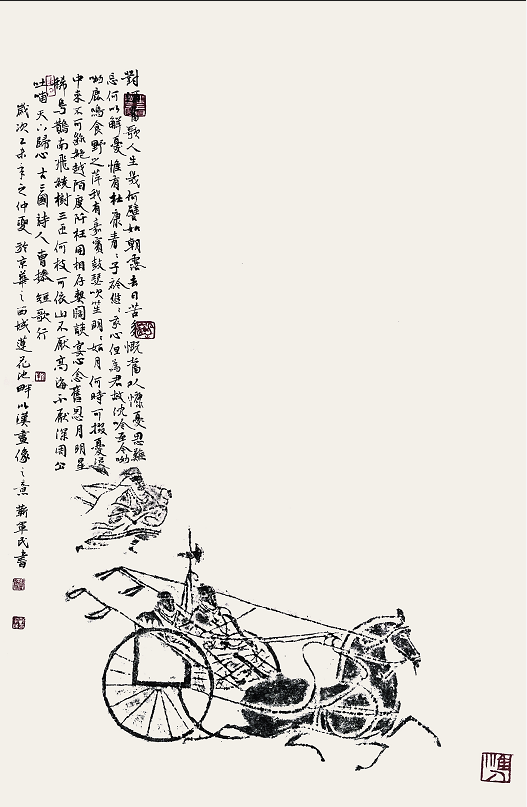 對酒當歌人生幾何譬如朝露去日苦多慨當以慷憂思難
忘何以解憂惟有杜康青々子衿悠々我心但為君故沈吟至今呦
呦鹿鳴食野之苹我有嘉賓鼓瑟吹笙明々如月何時可掇憂從
中來不可斷絕越陌度阡枉用相存契闊談宴心念舊恩月明星
稀烏鵲南飛繞樹三匝何枝可依山不厭高海不厭深周公
吐哺天下歸心古三國詩人曹操短歌行
歲次乙未年之仲夏於京華之西城蓮花池畔以漢畫像之意靳軍民書